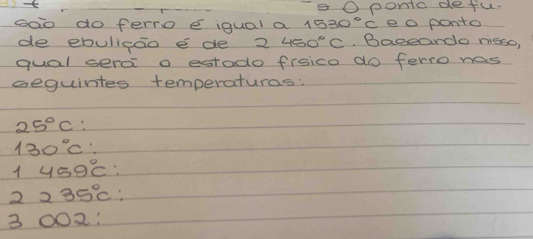 O ponto de fu-
são do ferro é igual a 1530°C e o ponto
de ebulição é de 2 450°C. Baseando nisso,
qual será o estado físico do ferro nas
seguintes temperaturas:
25°C:
130°C:
1 459°C:
2 235°C:
3 002: